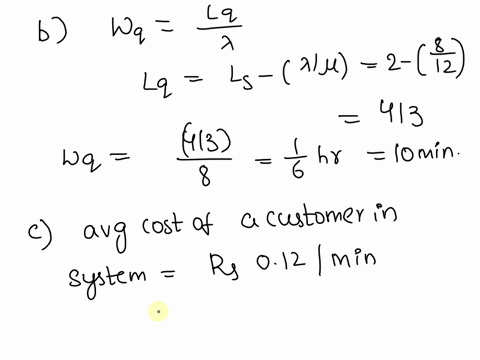 b) Wq = Lq/λ
Lq = Ls - (λ/μ) = 2 - (8/12)
= 4/3
Wq = (4/3)/8 = 1/6 hr = 10 min.
c) avg cost of a customer in
system = Rs 0.12 / min